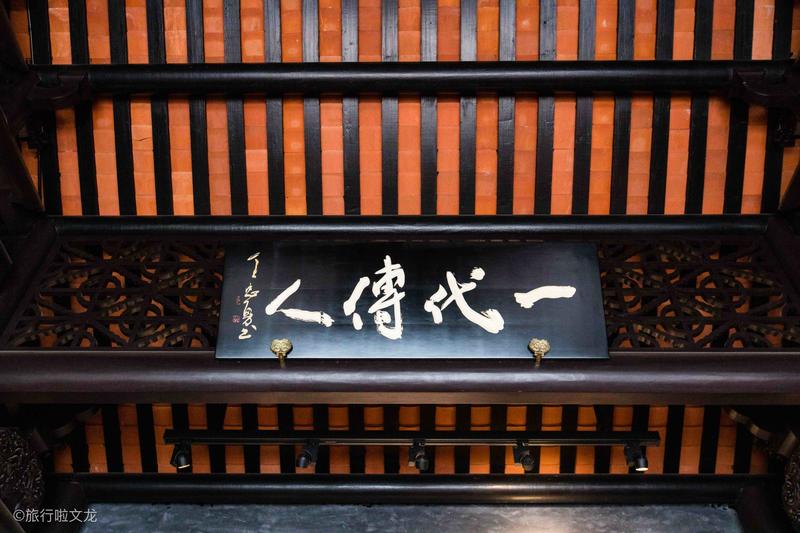 一代傳人
©旅行啦文龙